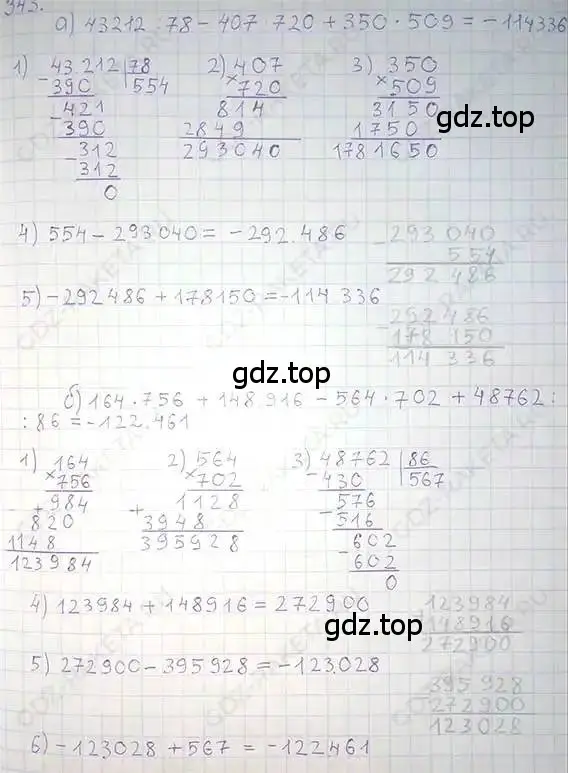 343.
а) 43212 : 78 - 407 · 720 + 350 · 509 = -114336
1) 43.212 | 78
- 390 554
- 421
390
- 312
312
0
2) 407
× 720
814
2849
293040
3) 350
× 509
3150
1750
1781650
4) 554 - 293.040 = -292.486
- 293 040
554
292 486
5) -292 486 + 178150 = -114 336
- 292 486
178 150
114 336
б) 164 · 756 + 148 916 - 564 · 702 + 48762 :
: 86 = -122.461
1) 164
× 756
+ 984
820
1148
123984
2) 564
× 702
+ 1128
3948
395928
3) 48762 | 86
- 430 567
- 576
516
- 602
602
0
4) 123984 + 148916 = 272900
123984
148916
272900
5) 272900 - 395928 = -123.028
395 928
272 900
123 028
6) -123028 + 567 = -122461
gdz.top
gdz.top
gdz.top
gdz.top